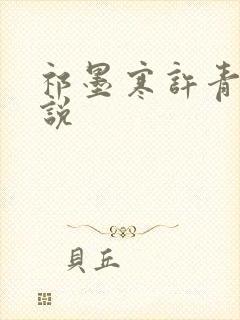 祁墨寒許青
說
貝丘